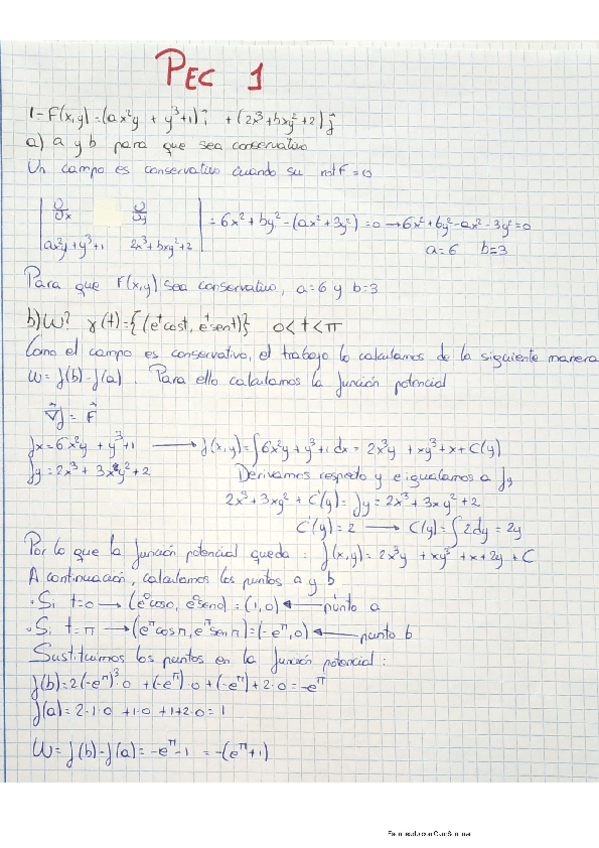 PEC 1
1- F(x,y) = (ax²y + y³+1) i + (2x³+bxy²+2) j
a) a y b para que sea conservativo
Un campo es conservativo cuando su rotF = 0
| ∂/∂x ∂/∂y |
| ax²y + y³+1 2x³+bxy²+2 | = 6x² + by² - (ax²+3y²) = 0 → 6x² + by² - ax² - 3y² = 0
a=6 b=3
Para que F(x,y) sea conservativo, a=6 y b=3
b) W? γ(t) = {(eᵗcost, eᵗsent)} 0<t<π
Como el campo es conservativo, el trabajo lo calculamos de la siguiente manera
W = f(b) - f(a). Para ello calculamos la función potencial
∇f = F
fx = 6x²y + y³+1 → f(x,y) = ∫6x²y + y³+1 dx = 2x³y + xy³ + x + C(y)
fy = 2x³ + 3xy² + 2 Derivamos respecto y e igualamos a fy
2x³ + 3xy² + C'(y) = fy = 2x³ + 3xy² + 2
C'(y) = 2 → C(y) = ∫2dy = 2y
Por lo que la función potencial queda: f(x,y) = 2x³y + xy³ + x + 2y + C
A continuación, calculamos los puntos a y b
· Si t=0 → (e⁰cos0, e⁰sen0) = (1,0) ← punto a
· Si t=π → (e^π cosπ, e^π senπ) = (-e^π, 0) ← punto b
Sustituimos los puntos en la función potencial:
f(b) = 2(-e^π)³·0 + (-e^π)·0 + (-e^π) + 2·0 = -e^π
f(a) = 2·1·0 + 1·0 + 1 + 2·0 = 1
W = f(b) - f(a) = -e^π - 1 = -(e^π + 1)